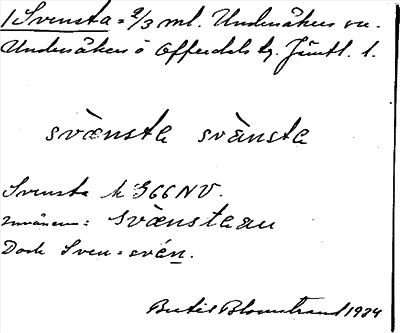 1 Svensta = 2/3 ml. Undersåkers sn.
Undersåkers o Offerdals tg. Jämtl. l.
svænsta svänsta
Svensta k 366 NV.
svænstean
Dock Sven = svén.
Bertil Blomstrand 1934